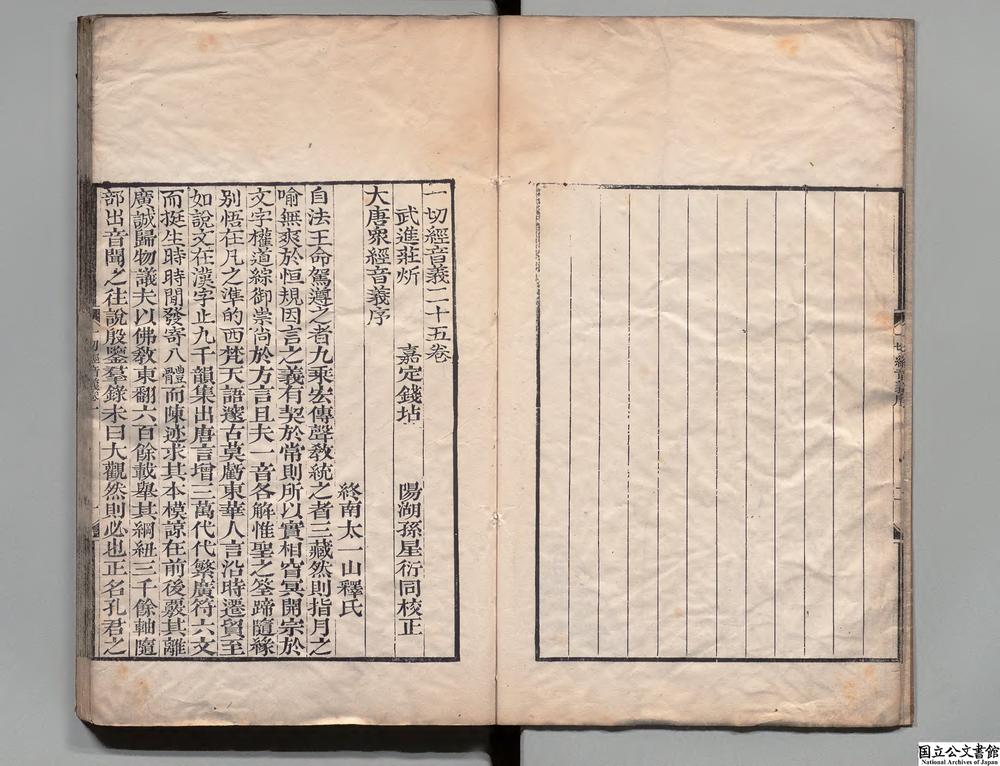 一切經音義二十五卷
武進莊炘　嘉定錢坫　陽湖孫星衍同校正
大唐衆經音義序
終南太一山釋氏
自法王命駕遵之者九乘宏傳聲敎統之者三藏然則指月之
喻無爽於恒規因言之義有契於常則所以實相窅冥開宗於
文字權道綜御崇尚於方言且夫一音各解惟聖之筌蹄隨緣
別悟在凡之準的西梵天語邃古莫虧東華人言沿時遷貿至
如說文在漢字止九千韻集出唐言增三萬代代繁廣符六文
而挺生時時閒發寄八體而陳迹求其本模諒在前後覈其離
廣誠歸物議夫以佛敎東翻六百餘載舉其綱紐三千餘軸隨
部出音聞之往說殷鑒羣錄未曰大觀然則必也正名孔君之
國立公文書館
National Archives of Japan